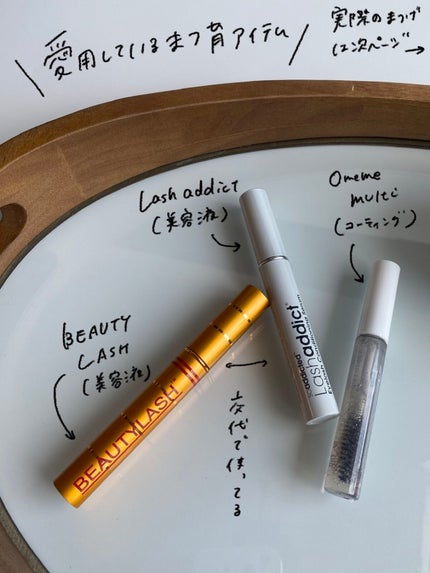 愛用しているまつ育アイテム
実際のまつげ
は次ページ→
Lash addict
(美容液)
Omeme
multi
(コーティング)
BEAUTY
LASH
(美容液)
交代で使ってる
BEAUTYLASH
addicted
Lashaddict